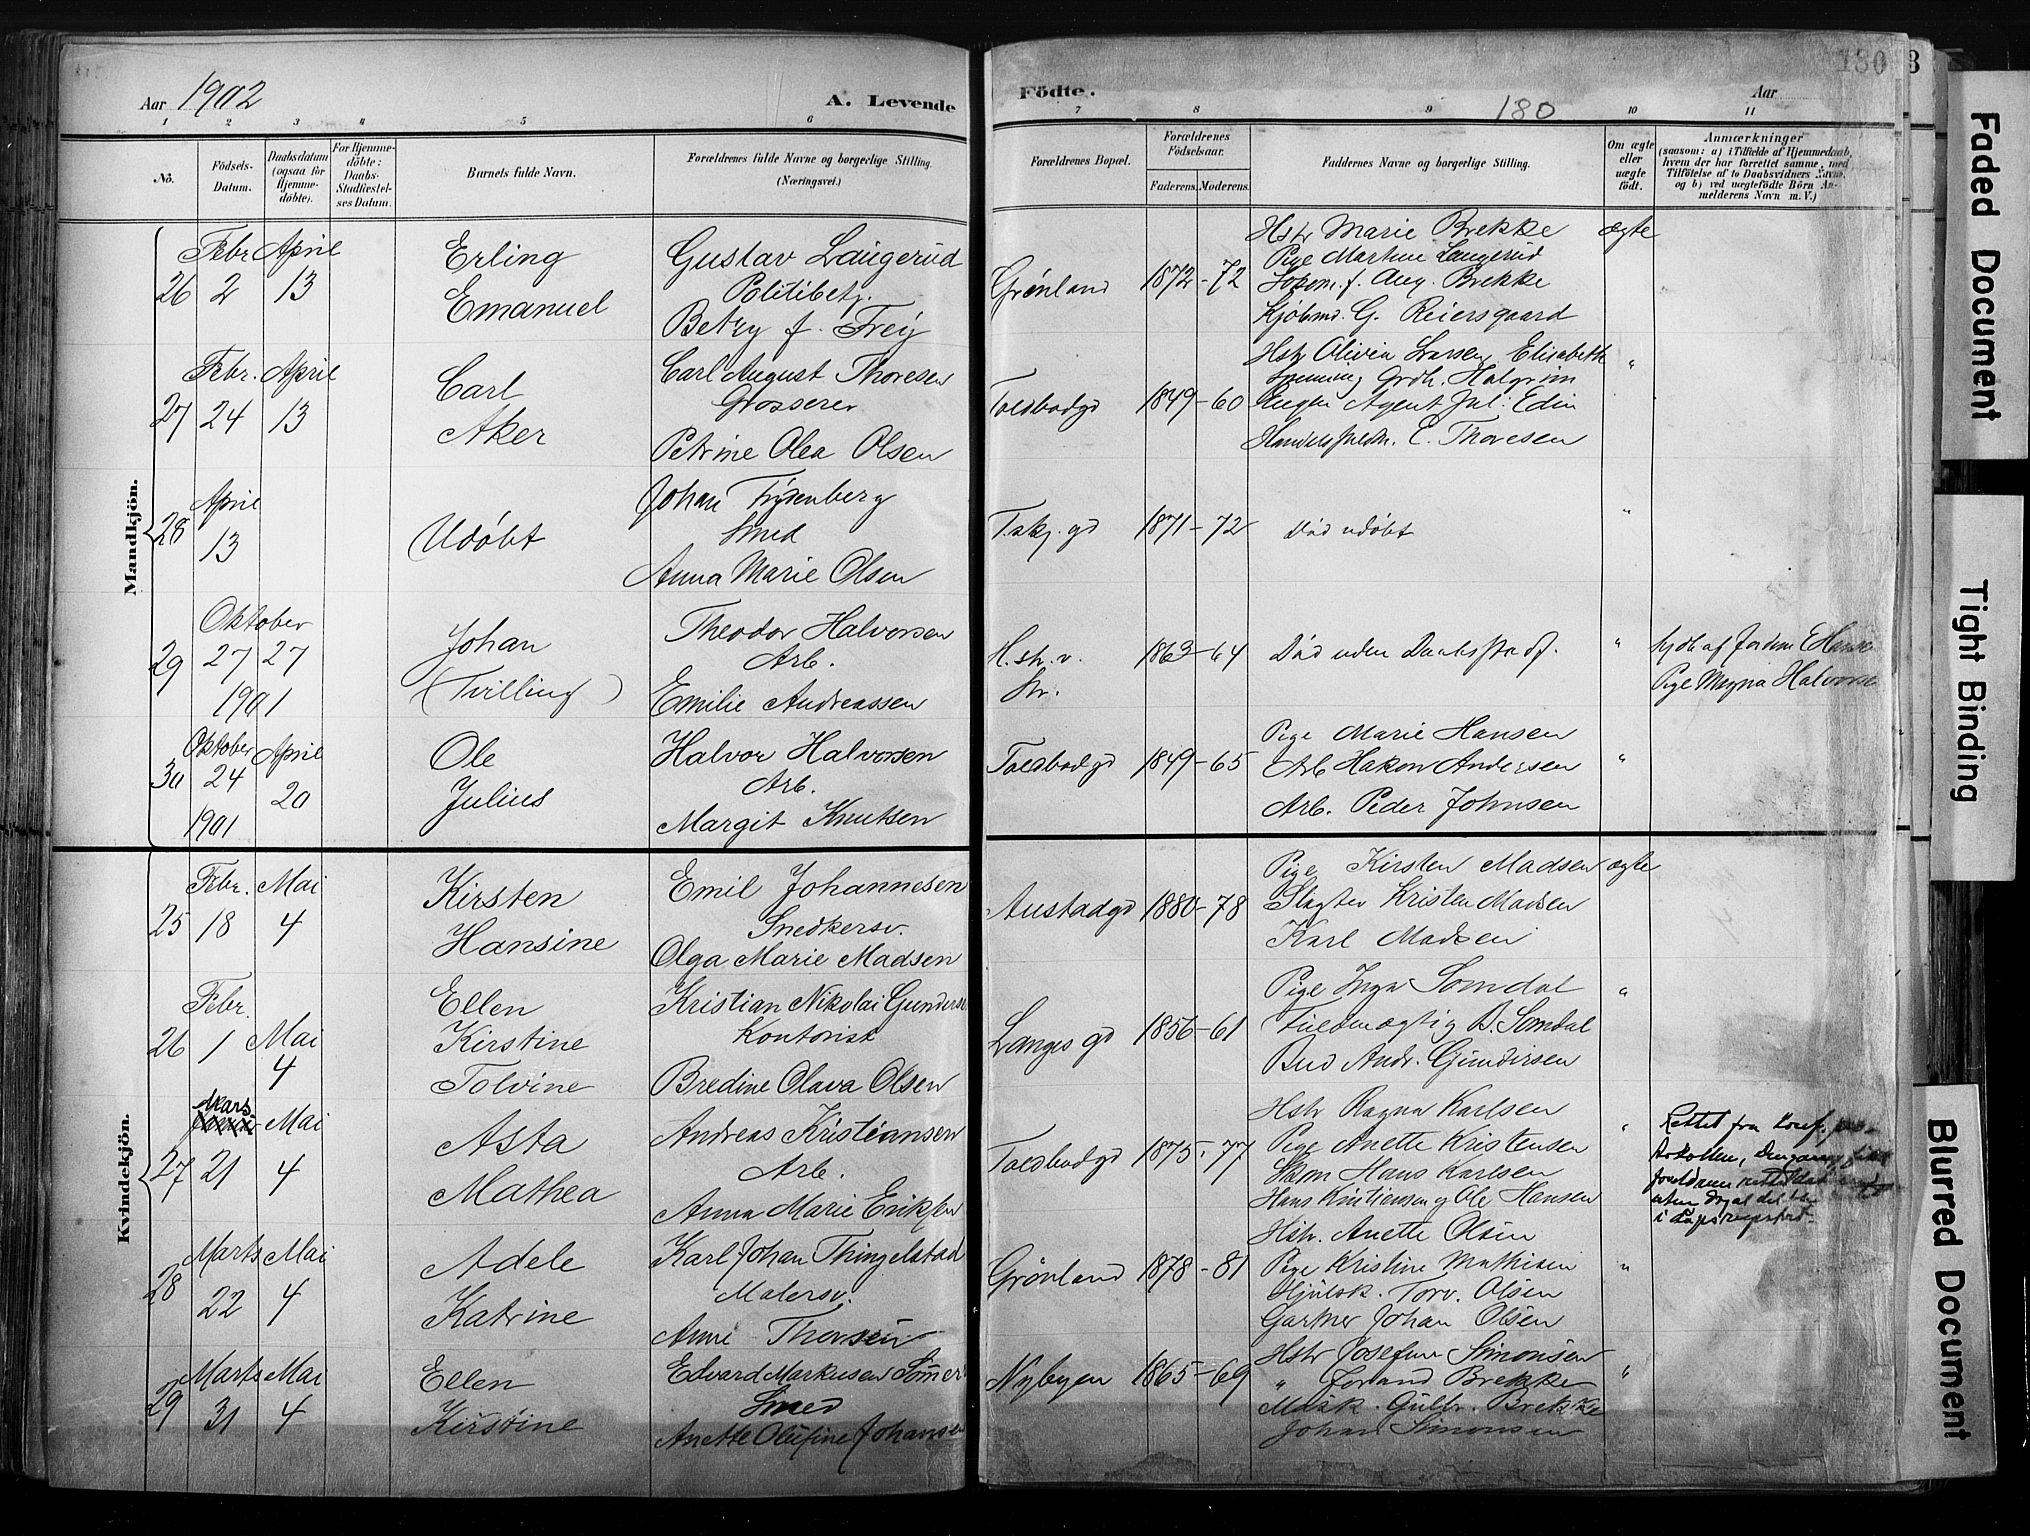 Aar 1902
A. Levende
1 2 3 4 5 6
Nô.
Födsels-
Datum.
Daabsdatum
(ogsaa for
Hjemme-
döbte).
For Hjemme-
döbte:
Daabs-
Stadfæstel-
ses Datum.
Barnets fulde Navn.
Forældrenes fulde Navne og borgerlige Stilling.
(Næringsvei.)
Mandkjön.
Febr April
26 2 13
Erling
Emanuel
Gustav Laugerud
Politibetj.
Betzy f. Frey
Febr. April
27 24 13
Carl
Aker
Carl August Thoresen
Grosserer
Petrine Olea Olsen
April
28 13
Udøbt
Johan
Smed
Anna Marie Olsen
Oktober
29 27 27
1901
Johan
(Tvilling)
Theodor Halvorsen
Arb.
Emilie Andreassen
Oktober April
30 24 20
1901
Ole
Julius
Halvor Halvorsen
Arb.
Margit Knutsen
Kvindekjön.
Febr. Mai
25 18 4
Kirsten
Hansine
Emil Johannesen
Snedkersv.
Olga Marie Madsen
Febr.
26 1 Mai
4
Ellen
Kirstine
Tolvine
Kristian Nikolai Gunders
Kontorist
Bredine Olava Olsen
Mars
Mai
27 21 4
Asta
Mathea
Andreas Kristiansen
Arb.
Anna Marie Eriksen
Marts Mai
28 22 4
Adele
Katrine
Karl Johan Thingelstad
Malersv.
Anne Thorsen
Marts Mai
29 31 4
Ellen
Kirstine
Edvard Markusen
Smed
Anette Olufine Johansen
Födte.
180
3
Aar
7 8 9 180 10 11
Forældrenes Bopæl.
Forældrenes
Födselsaar.
Faderens. Moderens.
Faddernes Navne og borgerlige Stilling.
Om ægte
eller
uægte
födt.
Anmærkninger
(saasom: a) i Tilfælde af Hjemmedaab,
hvem der har forrettet samme, med
Tilföielse af to Daabsvidners Navne,
og b) ved uægtefödte Börn An-
melderens Navn m. V.)
Hstr Marie Brekke ægte
Pige Martine Laugerud
Grønland 1872-72
f. Aug. Brekke
Kjøbmd. G. Reiersgaard
Hstr Olivia Larsen, Elisabeth "
Halgrim
Toldbodgd 1849-60
Agent Jul. Edin
E. Thoresen
T.skj.gd 1871-72 Død udøbt "
H.str.v. 1863-64 Død uden Daabsstadf. " hjdb af Jordm E Hansen
Kr. Pige Magna Halvorse
Pige Marie Hansen
Toldbodgd 1849-65 Arb Hakon Andersen "
Arb. Peder Johnsen
Pige Kirsten Madsen ægte
Austadgd 1880-78 Slagter Kristen Madsen
Karl Madsen
Pige Inga Somdal "
Langes gd 1856-61 Fuldmægtig B. Somdal
Bud Andr. Gundersen
Hstr Ragna Karlsen "
Toldbodgd 1875-77 Pige Anette Kristensen
Skom Hans Karlsen
Hans Kristiansen og Ole Hansen
Rettet fra
Hstr. Anette Olsen
Grönland 1878-81 Pige Kristine Mathisen "
Hjulsk. Torv. Olsen
Gartner Johan Olsen
Hstr Josefine Simonsen
Nybyen 1865-69 " Brekke "
Gulbr. Brekke
Johan Simonsen
Faded Document
Tight Binding
Blurred Document